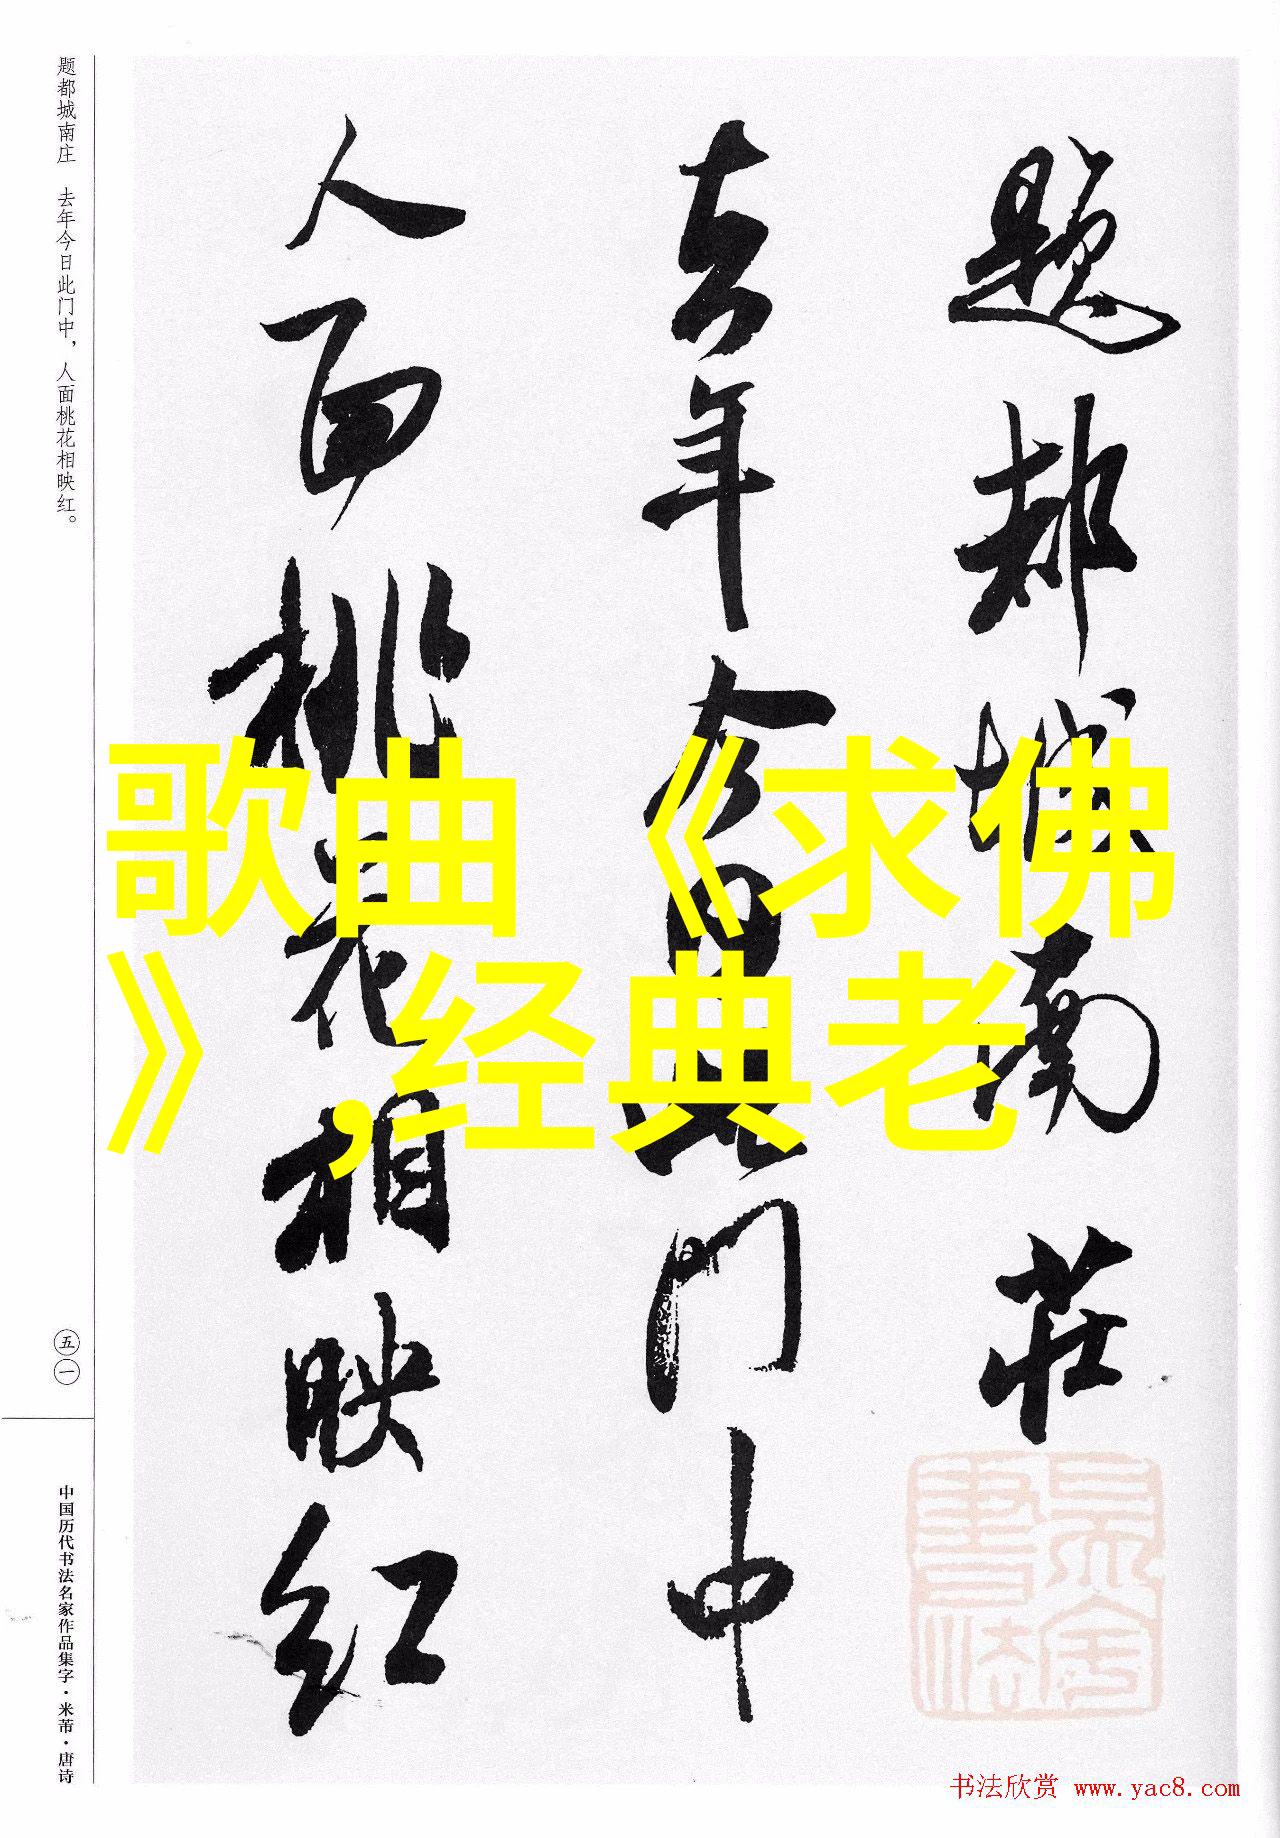 题都城南莊
去年今日此门中
人面桃花相映红
歌曲《求佛
》,经典老
题都城南庄 去年今日此门中，人面桃花相映红。
五一
中国历代书法名家作品集字·米芾·唐诗
书法欣赏 www.yac8.com